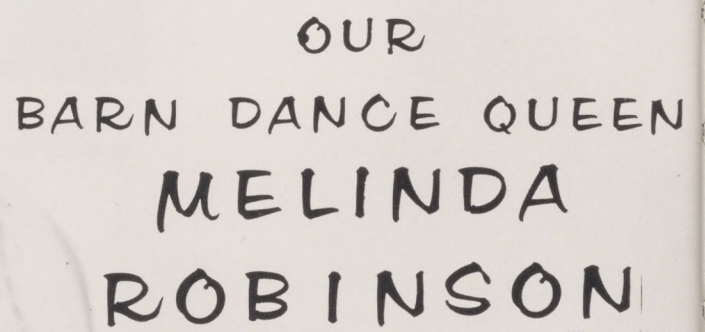 OUR
BARN DANCE QUEEN
MELINDA
ROBINSON